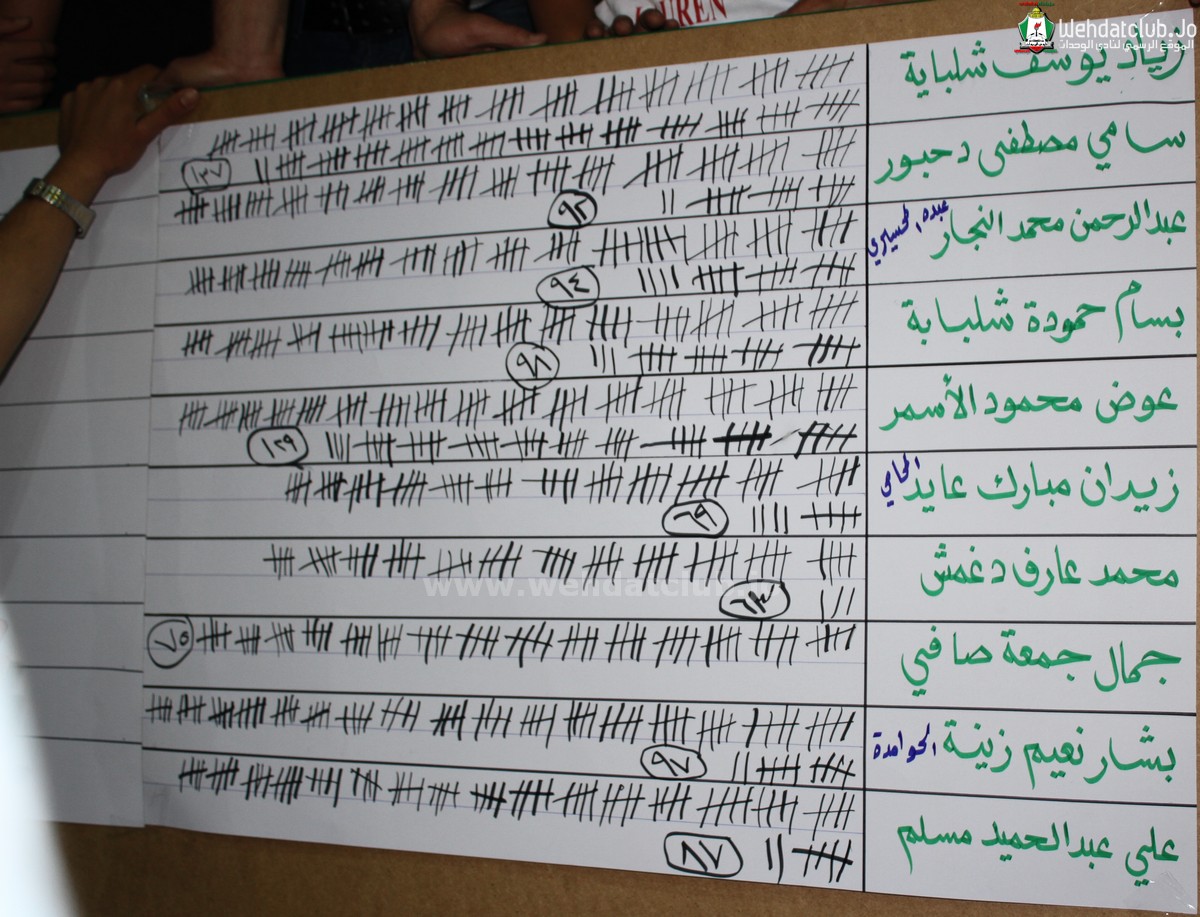 UREN
Wehdatclub.Jo
الموقع الرسمي لنادي الوحدات
زياد يوسف شلباية
١٢٧
سامي مصطفى دحبور
٩٢
عبدالرحمن محمد النجار عبده
٩٤
بسام حمودة شلباية
٩٨
عوض محمود الأسمر
١٢٩
زيدان مبارك عايد
٦٩
محمد عارف دغمش
٦٣
جمال جمعة صافي
٧٥
بشار نعيم زينة الحوامدة
٩٧
علي عبدالحميد مسلم
٨٧
www.wehdatclub.Jo